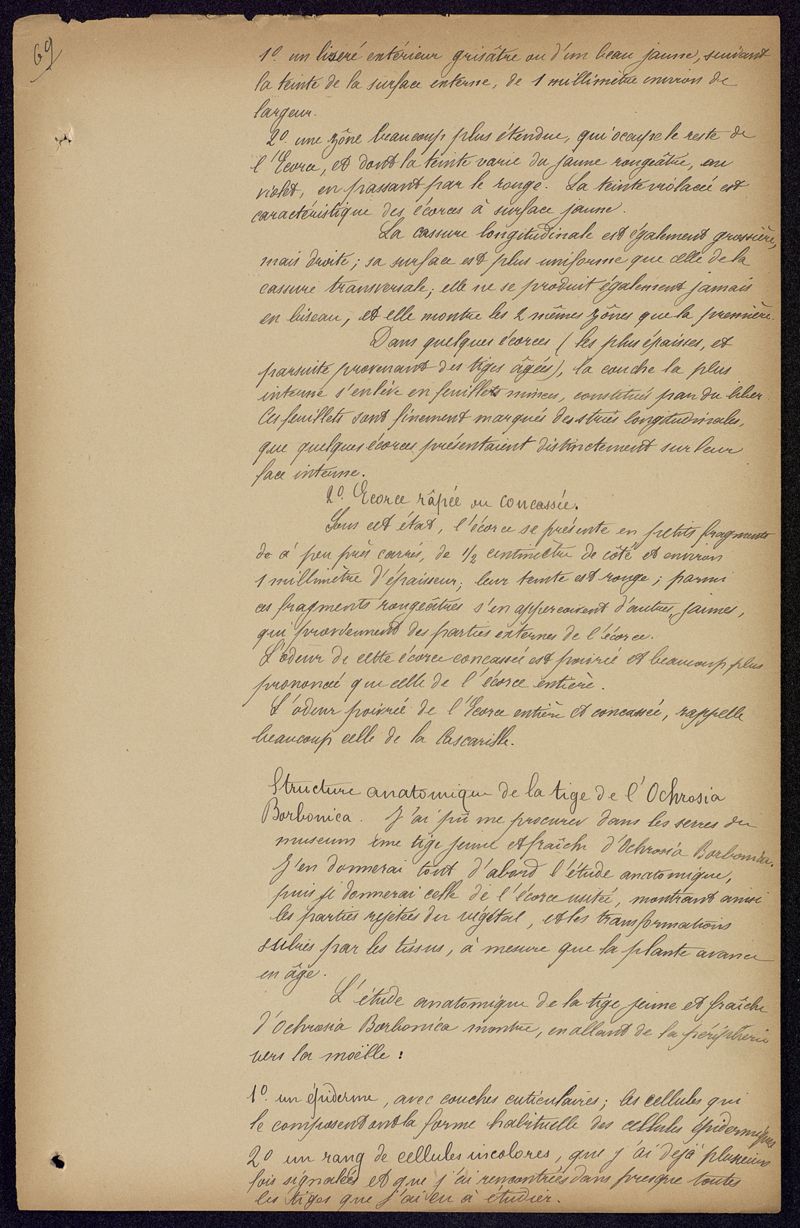 69
1º. un liseré extérieur grisâtre ou d'un beau jaune, suivant
la teinte de la surface interne, de 1 millimètre environ de
largeur.
2º. une zône beaucoup plus étendue, qui ocuupe le reste de
l'Ecorce, et dont la teinte varie du jaune rougeâtre, au
violet, en passant par le rouge. La teinte violacée est
caractéristique des écorces à surface jaune.
La cassure longitudinale est également grossière,
mais droite; sa surface est plus uniforme que celle de la
cassure transversale; elle ne se produit également jamais
en biseau, et elle montre les 2 mêmes zônes que la première.
Dans quelques écorces (les plus épaisses, et
parsuite provenant des tiges âgées), la couche la plus
interne s'enlève en feuillets minces, constitués par du liber.
Ces feuillets sont finement marqués de stries longitudinales,
que quelques écorces présentaient distinctement sur leur
face interne.
2º. Ecorce râpée ou concassée.
Sous cet état, l'écorce se présente en petits fragments
de à peu près carrés, de 1/2 centimètre de côté et environ
1 millimètre d'épaisseur; leur teinte est rouge; parmi
ces fragments rougeâtres s'en apperçoivent d'autres, jaunes,
qui proviennent des parties externes de l'écorce.
L'odeur de cette écorce concassée est poivrée et beaucoup plus
prononcée que celle de l'écorce entière.
L'odeur poivrée de l'Ecorce entière et concassée, rappelle
beaucoup celle de la Cascarille.
Structure anatomique de la tige de l'Ochrosia
Borbonica. J'ai pû me procurer dans les serres du
museum une tige jeune et fraîche d'Ochrosia Borbonica.
J'en donnerai tout d'abord l'étude anatomique,
puis je donnerai celle de l'écorce usitée, montrant ainsi
les parties rejetées du végétal, et les transformations
subies par les tissus, à mesure que la plante avance
en âge.
L'étude anatomique de la tige jeune et fraîche
d'Ochrosia Borbonica montre, en allant de la périphérie
vers la moëlle:
1º. un épiderme, avec couches cuticulaires; les cellules qui
le composent ont la forme habituelle des cellules épidermiques
2º un rang de cellules incolores, que j'ai déjà plusieurs
fois signalées et que j'ai rencontrées dans presque toutes
les tiges que j'ai eu à étudier.